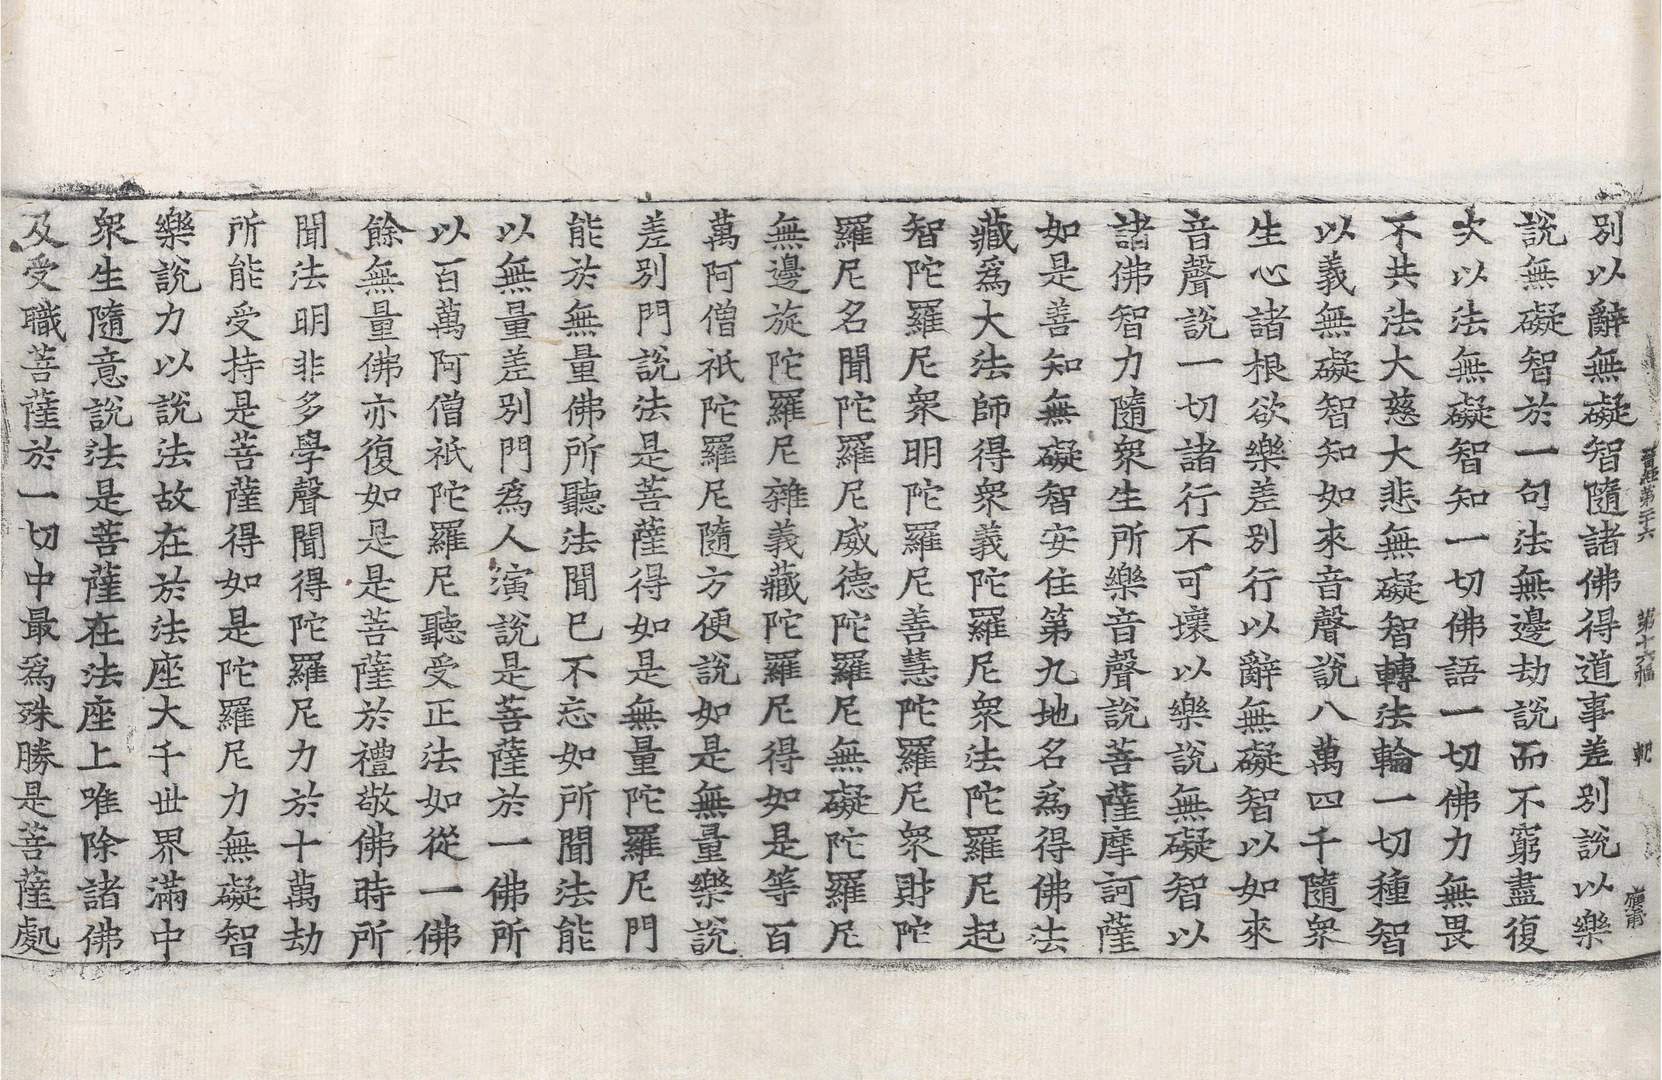 別以辭無礙智隨諸佛得道事差別說以樂
說無礙智於一句法無邊劫說而不窮盡復
次以法無礙智知一切佛語一切佛力無畏
不共法大慈大悲無礙智轉法輪一切種智
以義無礙智知如來音聲說八萬四千隨衆
生心諸根欲樂差別行以辭無礙智以如來
音聲說一切諸行不可壞以樂說無礙智以
諸佛智力隨衆生所樂音聲說菩薩摩訶薩
如是善知無礙智安住第九地名爲得佛法
藏爲大法師得衆義陀羅尼衆法陀羅尼起
智陀羅尼衆明陀羅尼善慧陀羅尼衆財陀
羅尼名聞陀羅尼威德陀羅尼無礙陀羅尼
無邊旋陀羅尼雜義藏陀羅尼得如是等百
萬阿僧祇陀羅尼隨方便說如是無量樂說
差別門說法是菩薩得如是無量陀羅尼門
能於無量佛所聽法聞已不忘如所聞法能
以無量差別門爲人演說是菩薩於一佛所
以百萬阿僧祇陀羅尼聽受正法如從一佛
餘無量佛亦復如是是菩薩於禮敬佛時所
聞法明非多學聲聞得陀羅尼力於十萬劫
所能受持是菩薩得如是陀羅尼力無礙智
樂說力以說法故在於法座大千世界滿中
衆生隨意說法是菩薩在法座上唯除諸佛
及受職菩薩於一切中最爲殊勝是菩薩處